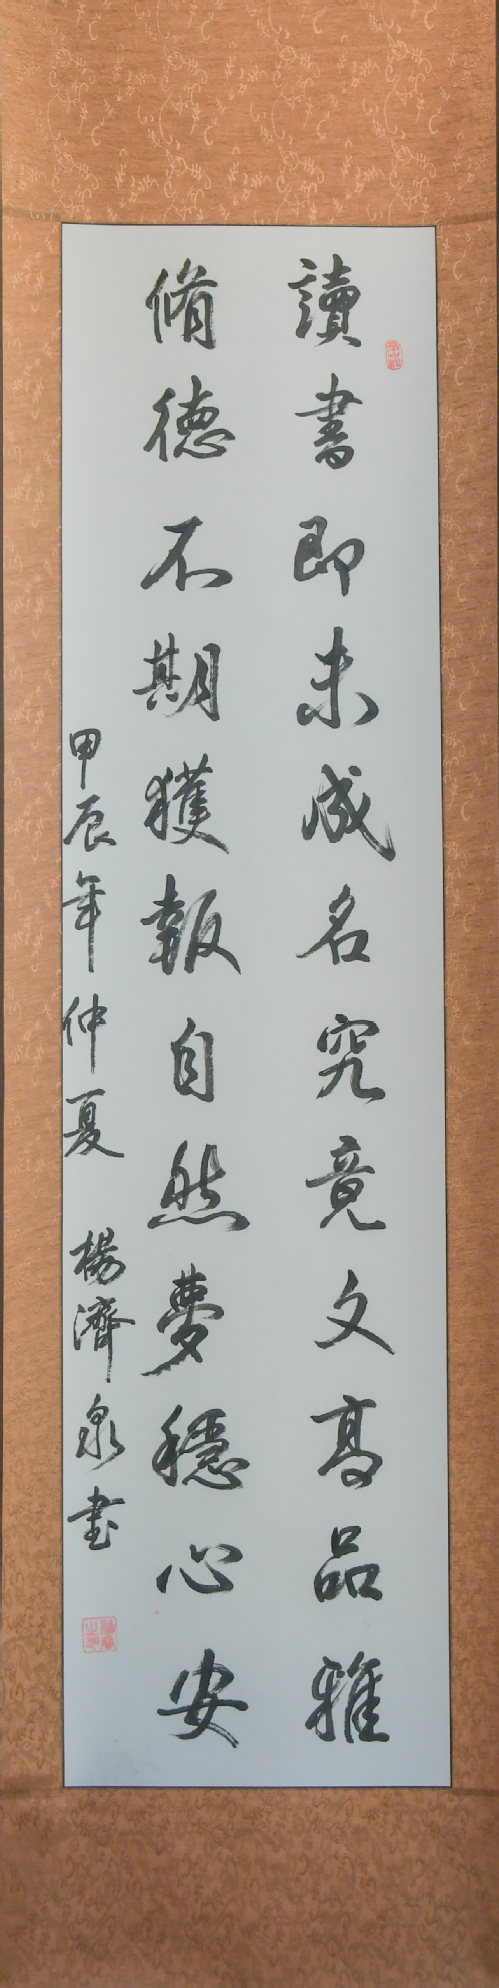 讀書即未成名究竟文高品雅
脩德不期獲報自然夢穩心安
甲辰年仲夏 楊濟泉書